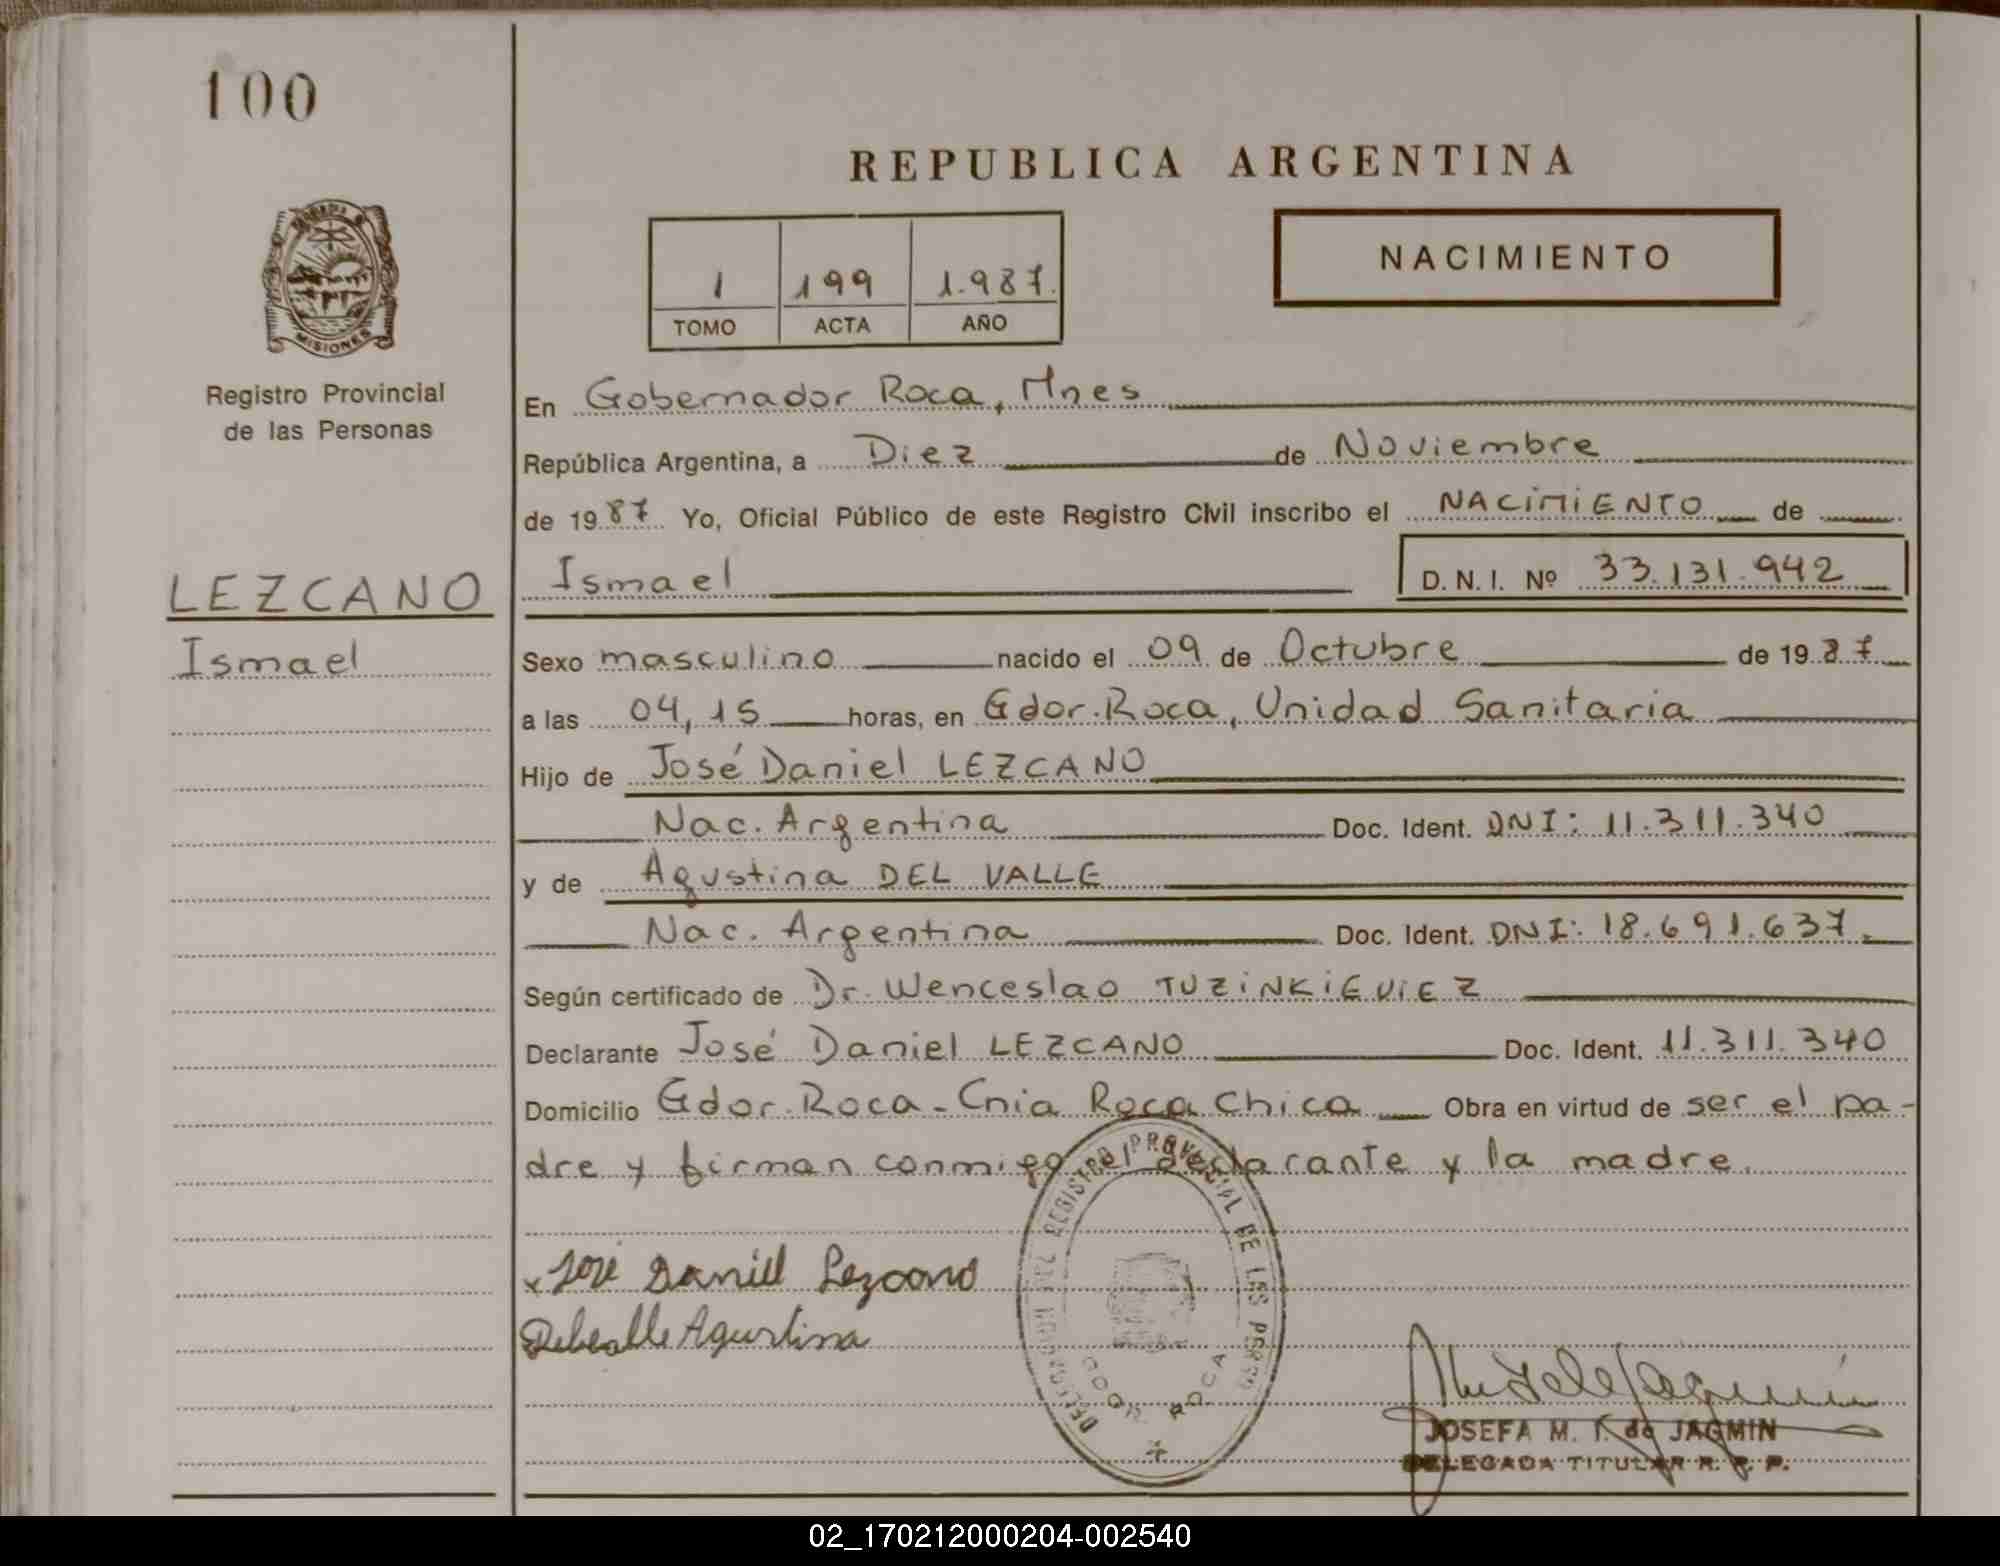 100
REPUBLICA ARGENTINA
NACIMIENTO
1 199 1.987.
TOMO ACTA AÑO
MISIONES
Registro Provincial
de las Personas
En Gobernador Roca, Mnes
República Argentina, a Diez de Noviembre
de 1987 Yo, Oficial Público de este Registro Civil inscribo el NACIMIENTO de
LEZCANO
Ismael D. N. I. Nº 33.131.942
Ismael
Sexo masculino nacido el 09 de Octubre de 1987
a las 04,15 horas, en Gdor. Roca, Unidad Sanitaria
Hijo de José Daniel LEZCANO
Nac. Argentina Doc. Ident. DNI: 11.311.340
y de Agustina DEL VALLE
Nac. Argentina Doc. Ident. DNI: 18.691.637.
Según certificado de Dr. Wenceslao TUZINKIEVIEZ
Declarante José Daniel LEZCANO Doc. Ident. 11.311.340
Domicilio Gdor. Roca - Cnia Roca Chica Obra en virtud de ser el pa-
dre y firman conmigo el declarante y la madre.
x José Daniel Lezcano
Delvalle Agustina
REGISTRO PROVINCIAL DE LAS PERSO
GODR. ROCA
JOSEFA M. F. de JAGMIN
DELEGADA TITULAR R. P. P.
02_170212000204-002540